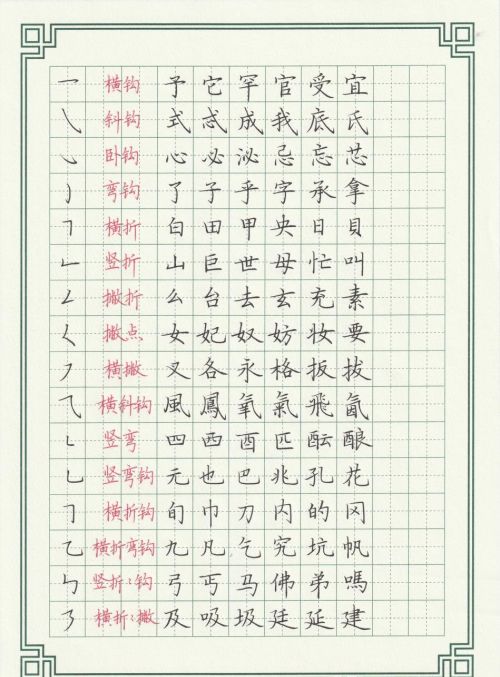 乛 横钩 予 它 罕 官 受 宜
㇂ 斜钩 式 惑 成 我 底 氏
㇃ 卧钩 心 必 泌 忌 忘 芯
㇁ 弯钩 了 子 乎 字 承 拿
𠃍 横折 白 田 甲 央 日 貝
𠃊 竖折 山 巨 世 母 忙 叫
𠃋 撇折 么 台 去 玄 充 素
𡿨 撇点 女 妃 奴 妨 妆 要
㇇ 横撇 叉 各 永 格 扳 拔
⺄ 横斜钩 風 鳳 氧 氣 飛 氤
㇄ 竖弯 四 西 酉 匹 酝 酿
乚 竖弯钩 元 也 巴 兆 孔 花
𠃌 横折钩 旬 巾 刀 内 的 冈
乙 横折弯钩 九 凡 乞 究 坑 帆
㇉ 竖折:钩 弓 丐 马 佛 弟 嗎
㇋ 横折:撇 及 吸 圾 廷 延 建